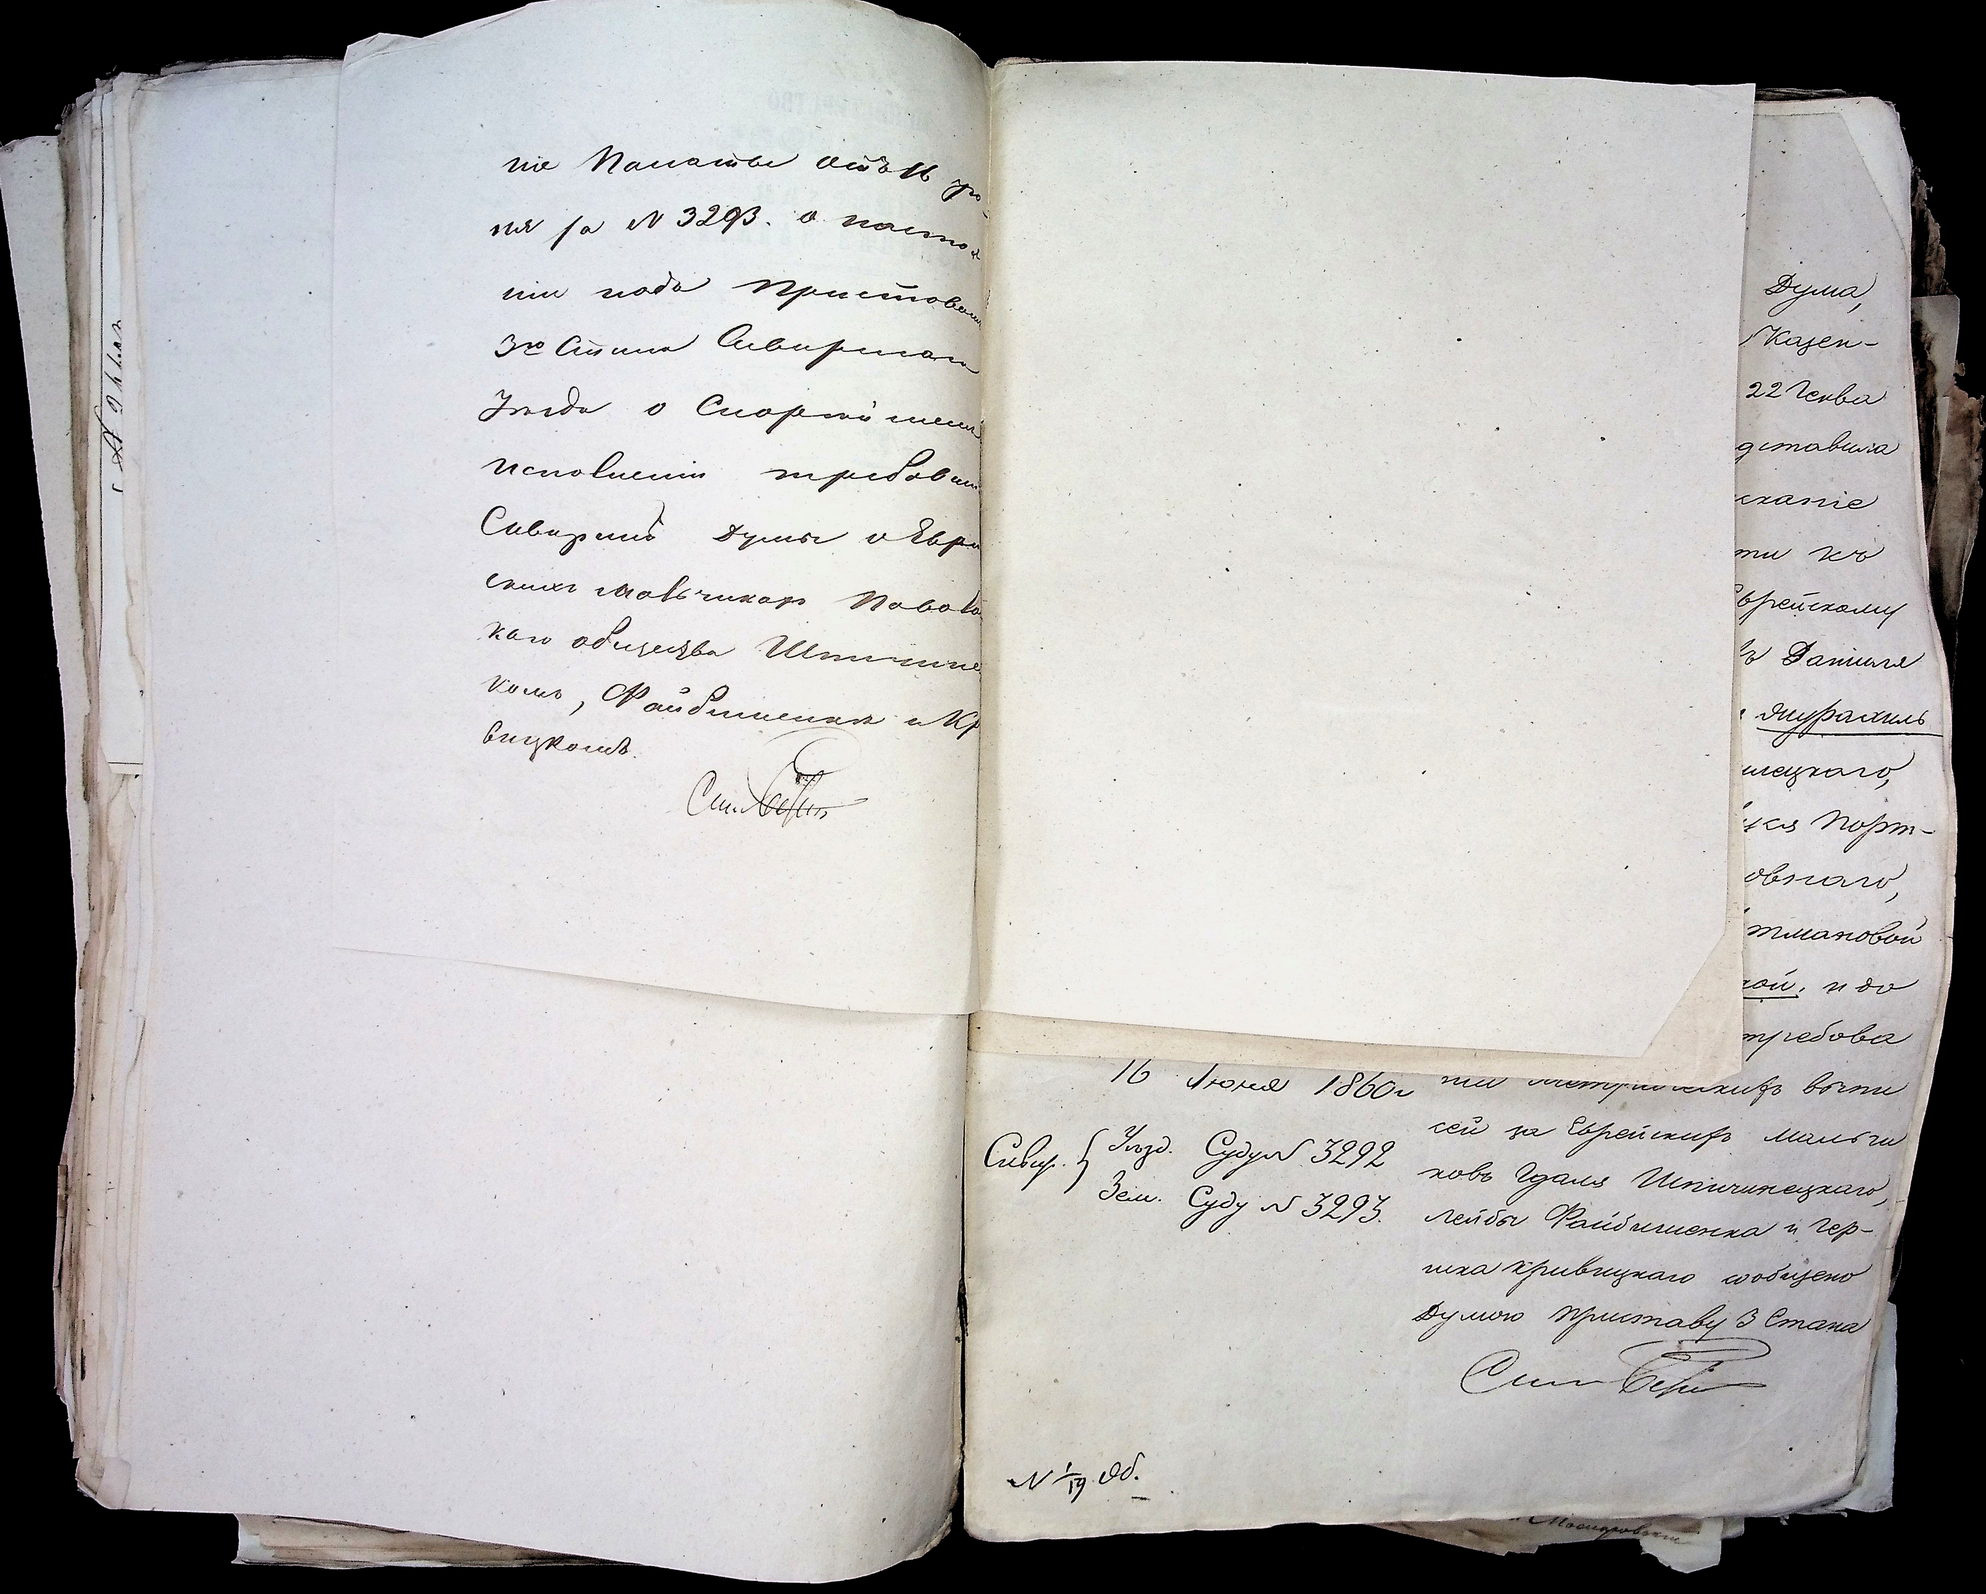 ніе Палаты отъ 16 Ію-
ня за N 3293. о настоя
ніи надъ Приставомъ
3го Стана Сквирскаго
Уезда о Скорейшемъ
исполненіи требован
Сквирской Думы о Евре
скихъ мальчикахъ Паволо
каго общества Шпичинец
комъ, Файбишенка и Кр
вицкомъ.
Дума,
Казен-
22 Генва
дставила
сканіе
ти къ
Еврейскому
Даніиля
мецкаго,
Порт-
овнаго,
тмановой
ной, и до
требова
16 Іюня 1860 г
Сквир. { Уезд. Суду N 3292
Зем. Суду N 3293.
нія метрическихъ выпи
сей за Еврейскихъ мальчи
ковъ Гдаля Шпичинецкаго,
Лейбы Файбишенка и Гер-
шка Кривицкаго сообщено
Думою Приставу 3 Стана
N 1/19 Об.